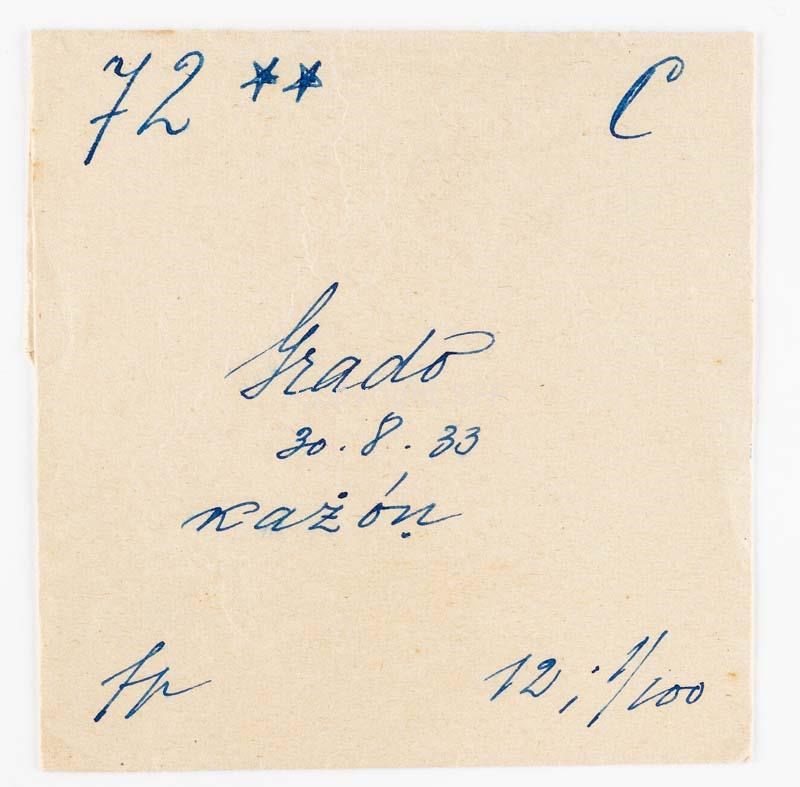 72 ** C
Grado
30.8.33
każóṇ
fp 12; 1/100